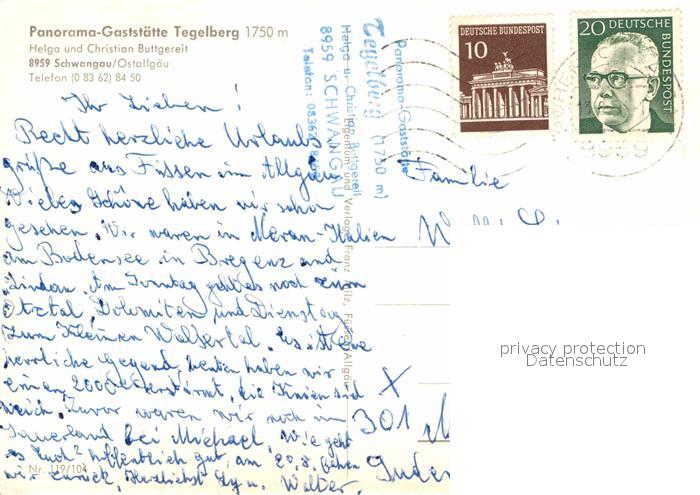 Panorama-Gaststätte Tegelberg 1750 m
Helga und Christian Buttgereit
8959 Schwangau/Ostallgäu
Telefon (0 83 62) 84 50
Ihr Lieben!
Recht herzliche Urlaubs
grüße aus Füssen im Allgäu
Vieles Schöne haben wir schon
gesehen. Wir waren in Meran-Italien
am Bodensee in Bregenz und
Lindau. Am Sonntag geht es noch zum
Ötztal, Dolomiten und Dienstag
zum Kleinen Walsertal. Es ist eine
herrliche Gegend, heute haben wir
einen 2000er erstürmt, die Knie sind
weich. Zuvor waren wir noch im
Sauerland bei Michael. Wie geht
es Euch? hoffentlich gut, am 20.8. gehen
wir zurück. Herzlichst Walter
Nr. 119/104
Panorama-Gaststätte
Tegelberg (1750 m)
Helga u. Christian Buttgereit
8959 SCHWANGAU
Telefon: 08362/8450
Eigentum und Verlag: Franz Milz, Füssen/Allgäu
DEUTSCHE BUNDESPOST
10
DEUTSCHE
BUNDESPOST
20
8959
Familie
301
privacy protection
Datenschutz